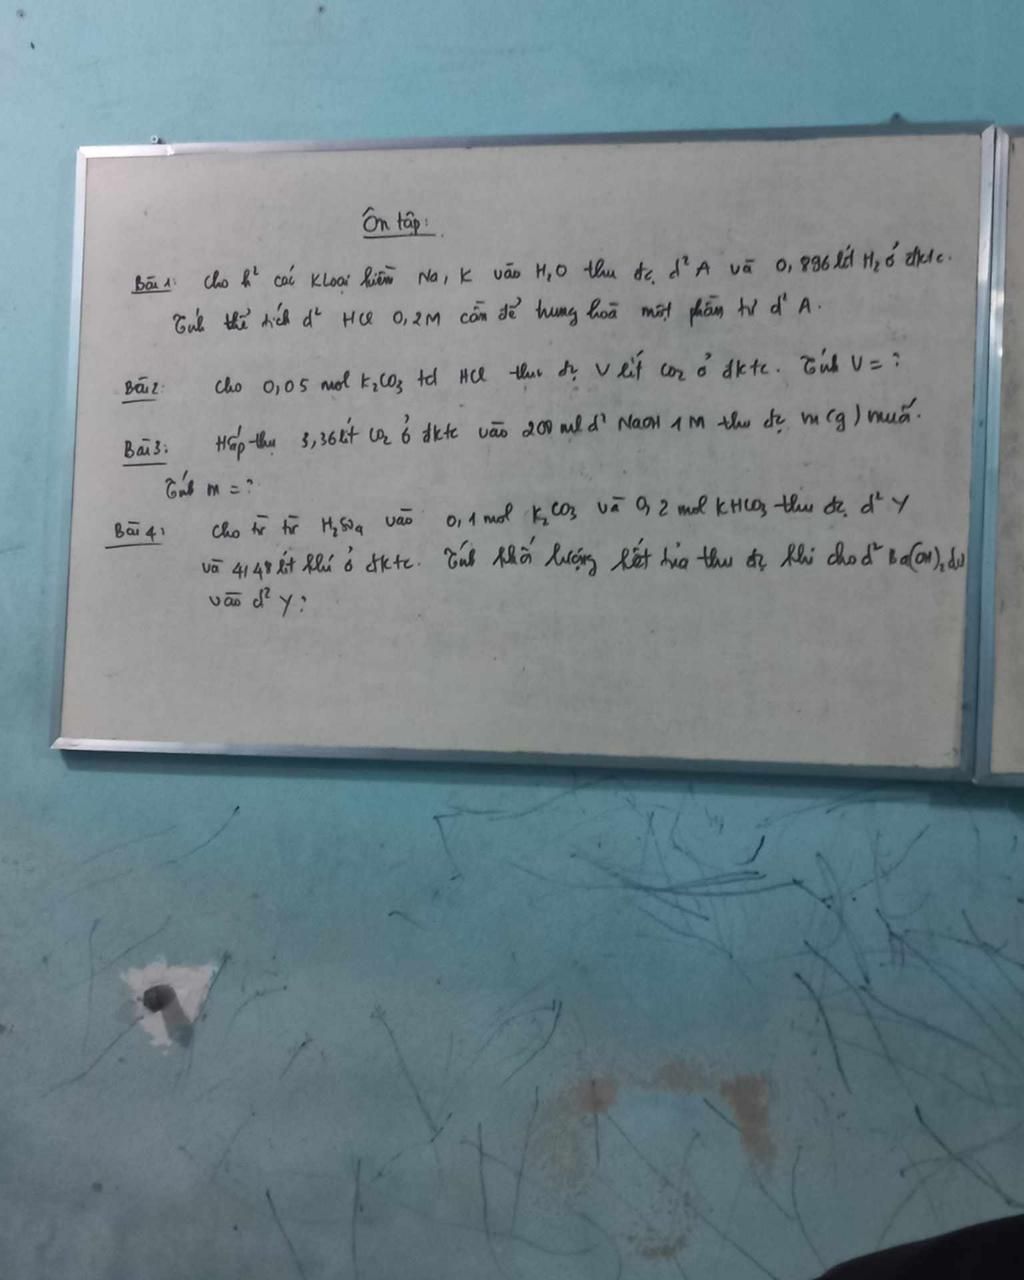 Ôn tập:
Bài 1: Cho h² các Kloại kiềm Na, K vào H₂O thu đc d² A và 0,896 lít H₂ ở đktc.
Tính thể tích d² HCl 0,2M cần để trung hoà một phần tư d² A.
Bài 2: Cho 0,05 mol K₂CO₃ td HCl thu đc V lít CO₂ ở đktc. Tính V = ?
Bài 3: Hấp thụ 3,36 lít CO₂ ở đktc vào 200 ml d² NaOH 1M thu đc m(g) muối.
Tính m = ?
Bài 4: Cho từ từ H₂SO₄ vào 0,1 mol K₂CO₃ và 0,2 mol KHCO₃ thu đc d² Y
và 4,48 lít khí ở đktc. Tính khối lượng kết tủa thu đc khi cho d² Ba(OH)₂ dư
vào d² Y?